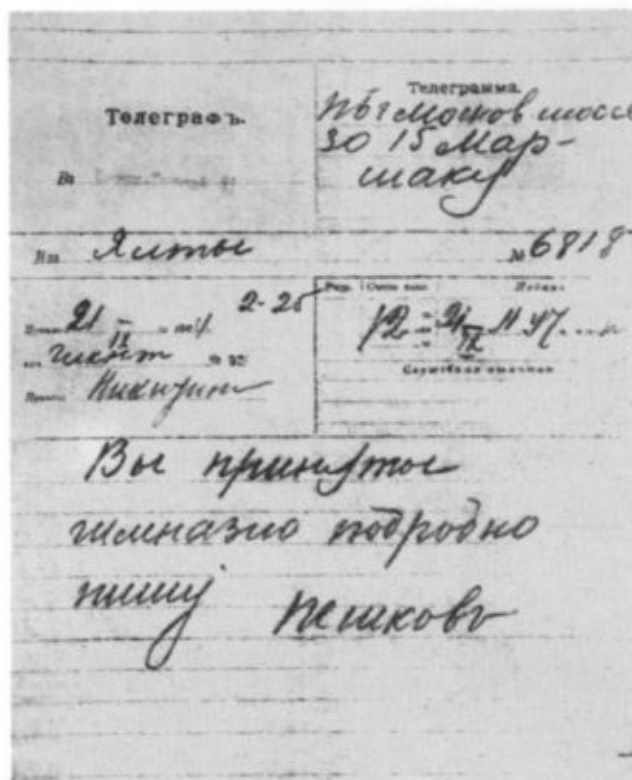 Телеграфъ.
Телеграмма.
Пбг Москов шоссе
30 15 Мар-
шаку
Въ
Изъ Ялты
№ 6818
21
2-25
12
Служебныя отметки
Вы приняты
гимназию подробно
пишу Пешковъ